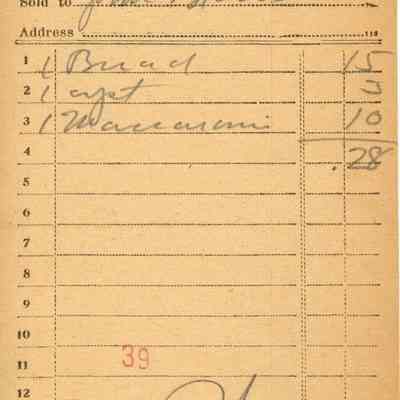 Sold to
Address
1 1 Bread 15
2 1 3
3 1 Maccaroni 10
4 .28
5
6
7
8
9
10
11 39
12